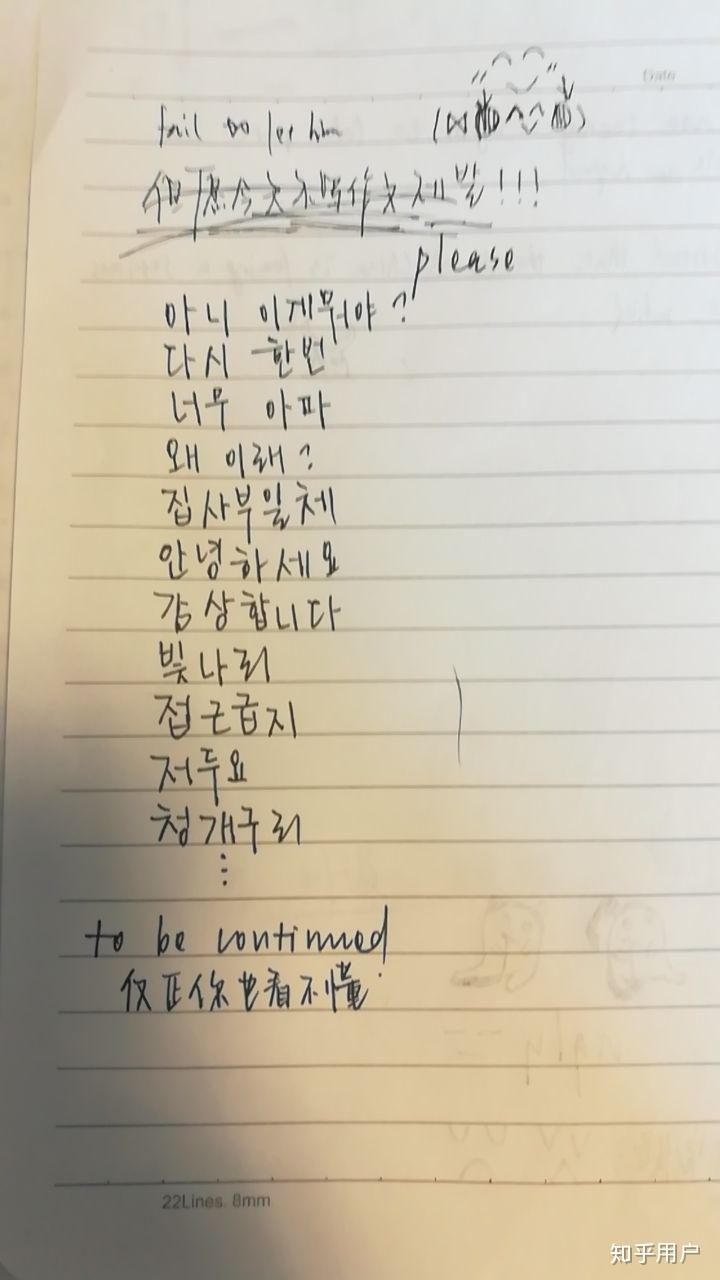 Date
fail
但愿今天不写作文제발!!!
please
아니 이게뭐야?
다시 한번
너무 아파
왜 이래?
집사부일체
안녕하세요
감상합니다
빛나리
접근급지
저두요
청개구리
⋮
to be continued
反正你也看不懂
22Lines. 8mm
知乎用户